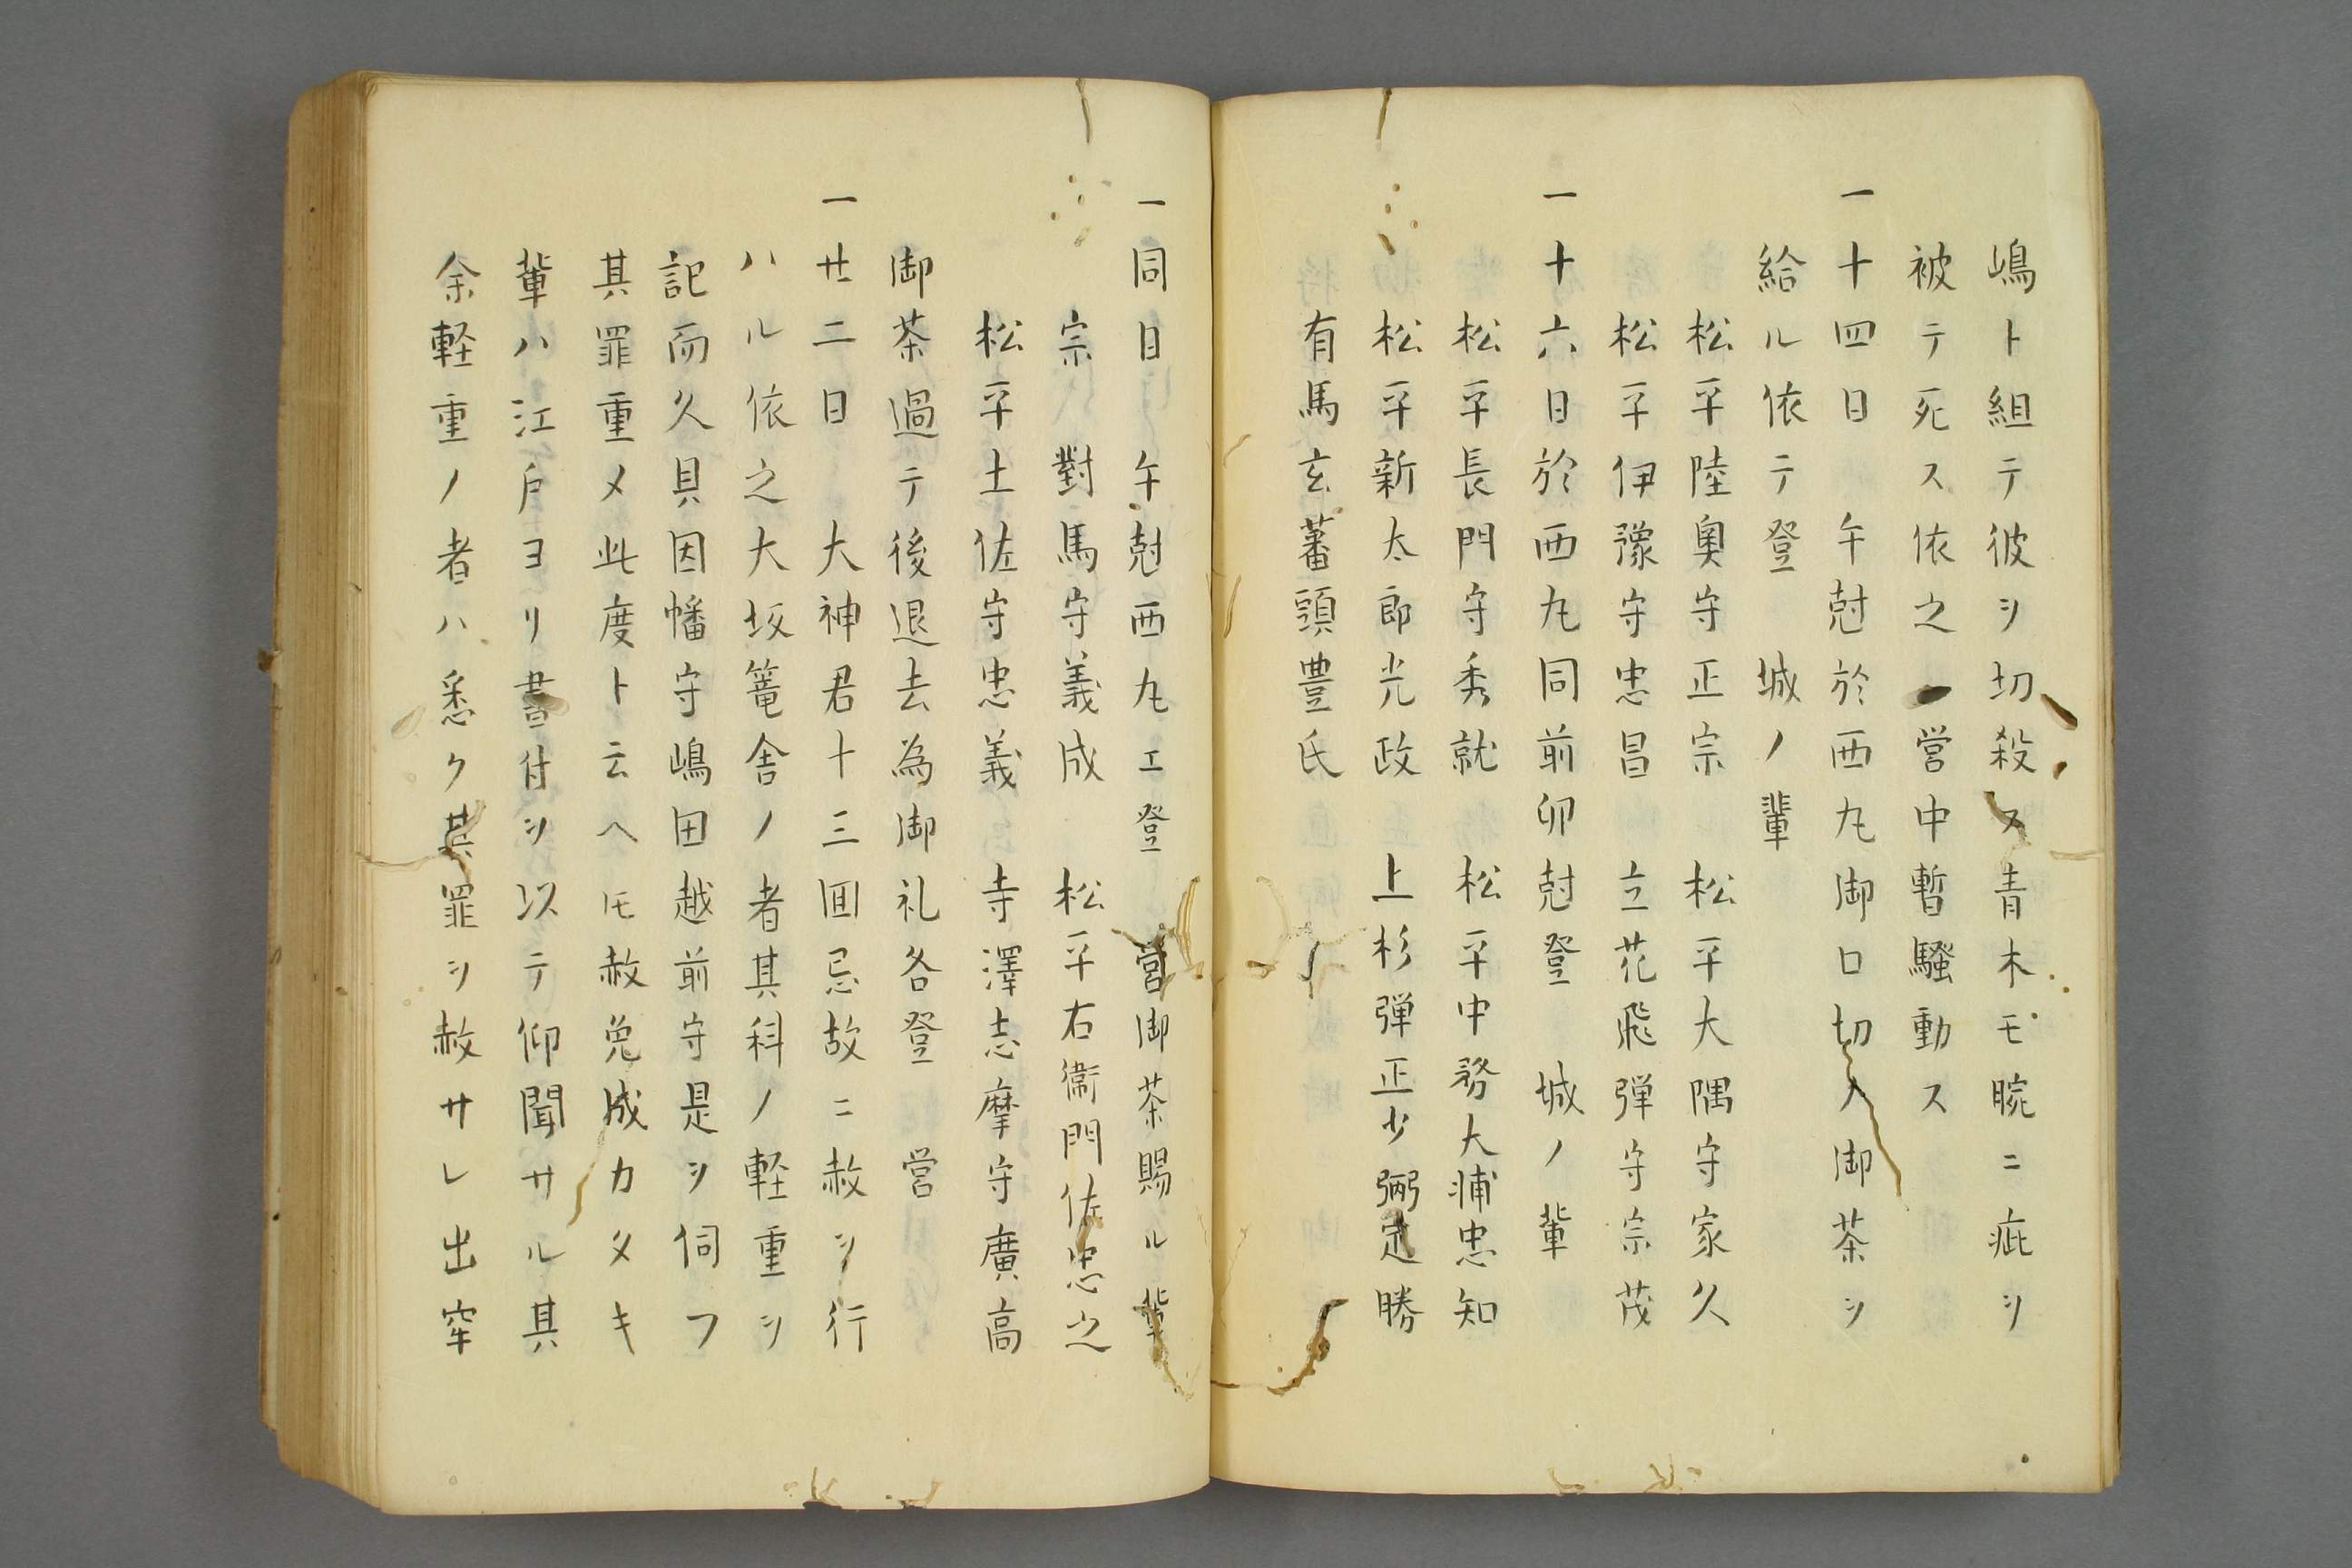 嶋ト組テ彼ヲ切殺ス青木モ腕ニ疵ヲ
被テ死ス依之 営中暫騒動ス
一十四日 午尅於西丸御口切ノ御茶ヲ
給ル依テ登 城ノ輩
松平陸奥守正宗 松平大隅守家久
松平伊豫守忠昌 立花飛弾守宗茂
一十六日於西丸同前卯尅登 城ノ輩
松平長門守秀就 松平中務大浦忠知
松平新太郎光政 上杉弾正少弼定勝
有馬玄蕃頭豊氏
一同日 午尅西丸エ登 営御茶賜ル輩
宗 對馬守義成 松平右衛門佐忠之
松平土佐守忠義 寺澤志摩守廣高
御茶過テ後退去為御礼各登 営
一廿二日 大神君十三囬忌故ニ赦ヲ行
ハル依之大坂篭舎ノ者其科ノ軽重ヲ
記而久貝因幡守嶋田越前守是ヲ伺フ
其罪重メ此度ト云ヘ𪜈赦免成カタキ
輩ハ江戸ヨリ書付ヲ以テ仰聞サル其
余軽重ノ者ハ悉ク其罪ヲ赦サレ出窂